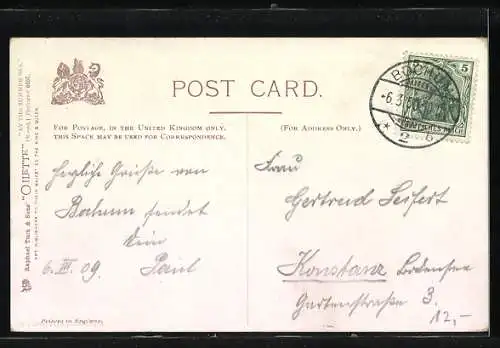 POST CARD.
FOR POSTAGE, IN THE UNITED KINGDOM ONLY,
THIS SPACE MAY BE USED FOR CORRESPONDENCE.
(FOR ADDRESS ONLY.)
Raphael Tuck & Sons' "OILETTE"
ART PUBLISHERS TO THEIR MAJESTIES THE KING & QUEEN
herzliche Grüße von
Bochum sendet
Dein
6. III. 09. Paul
Frau
Gertrud Seifert
Konstanz Bodensee
Gartenstraße 3.
12,-
BOCHUM
5